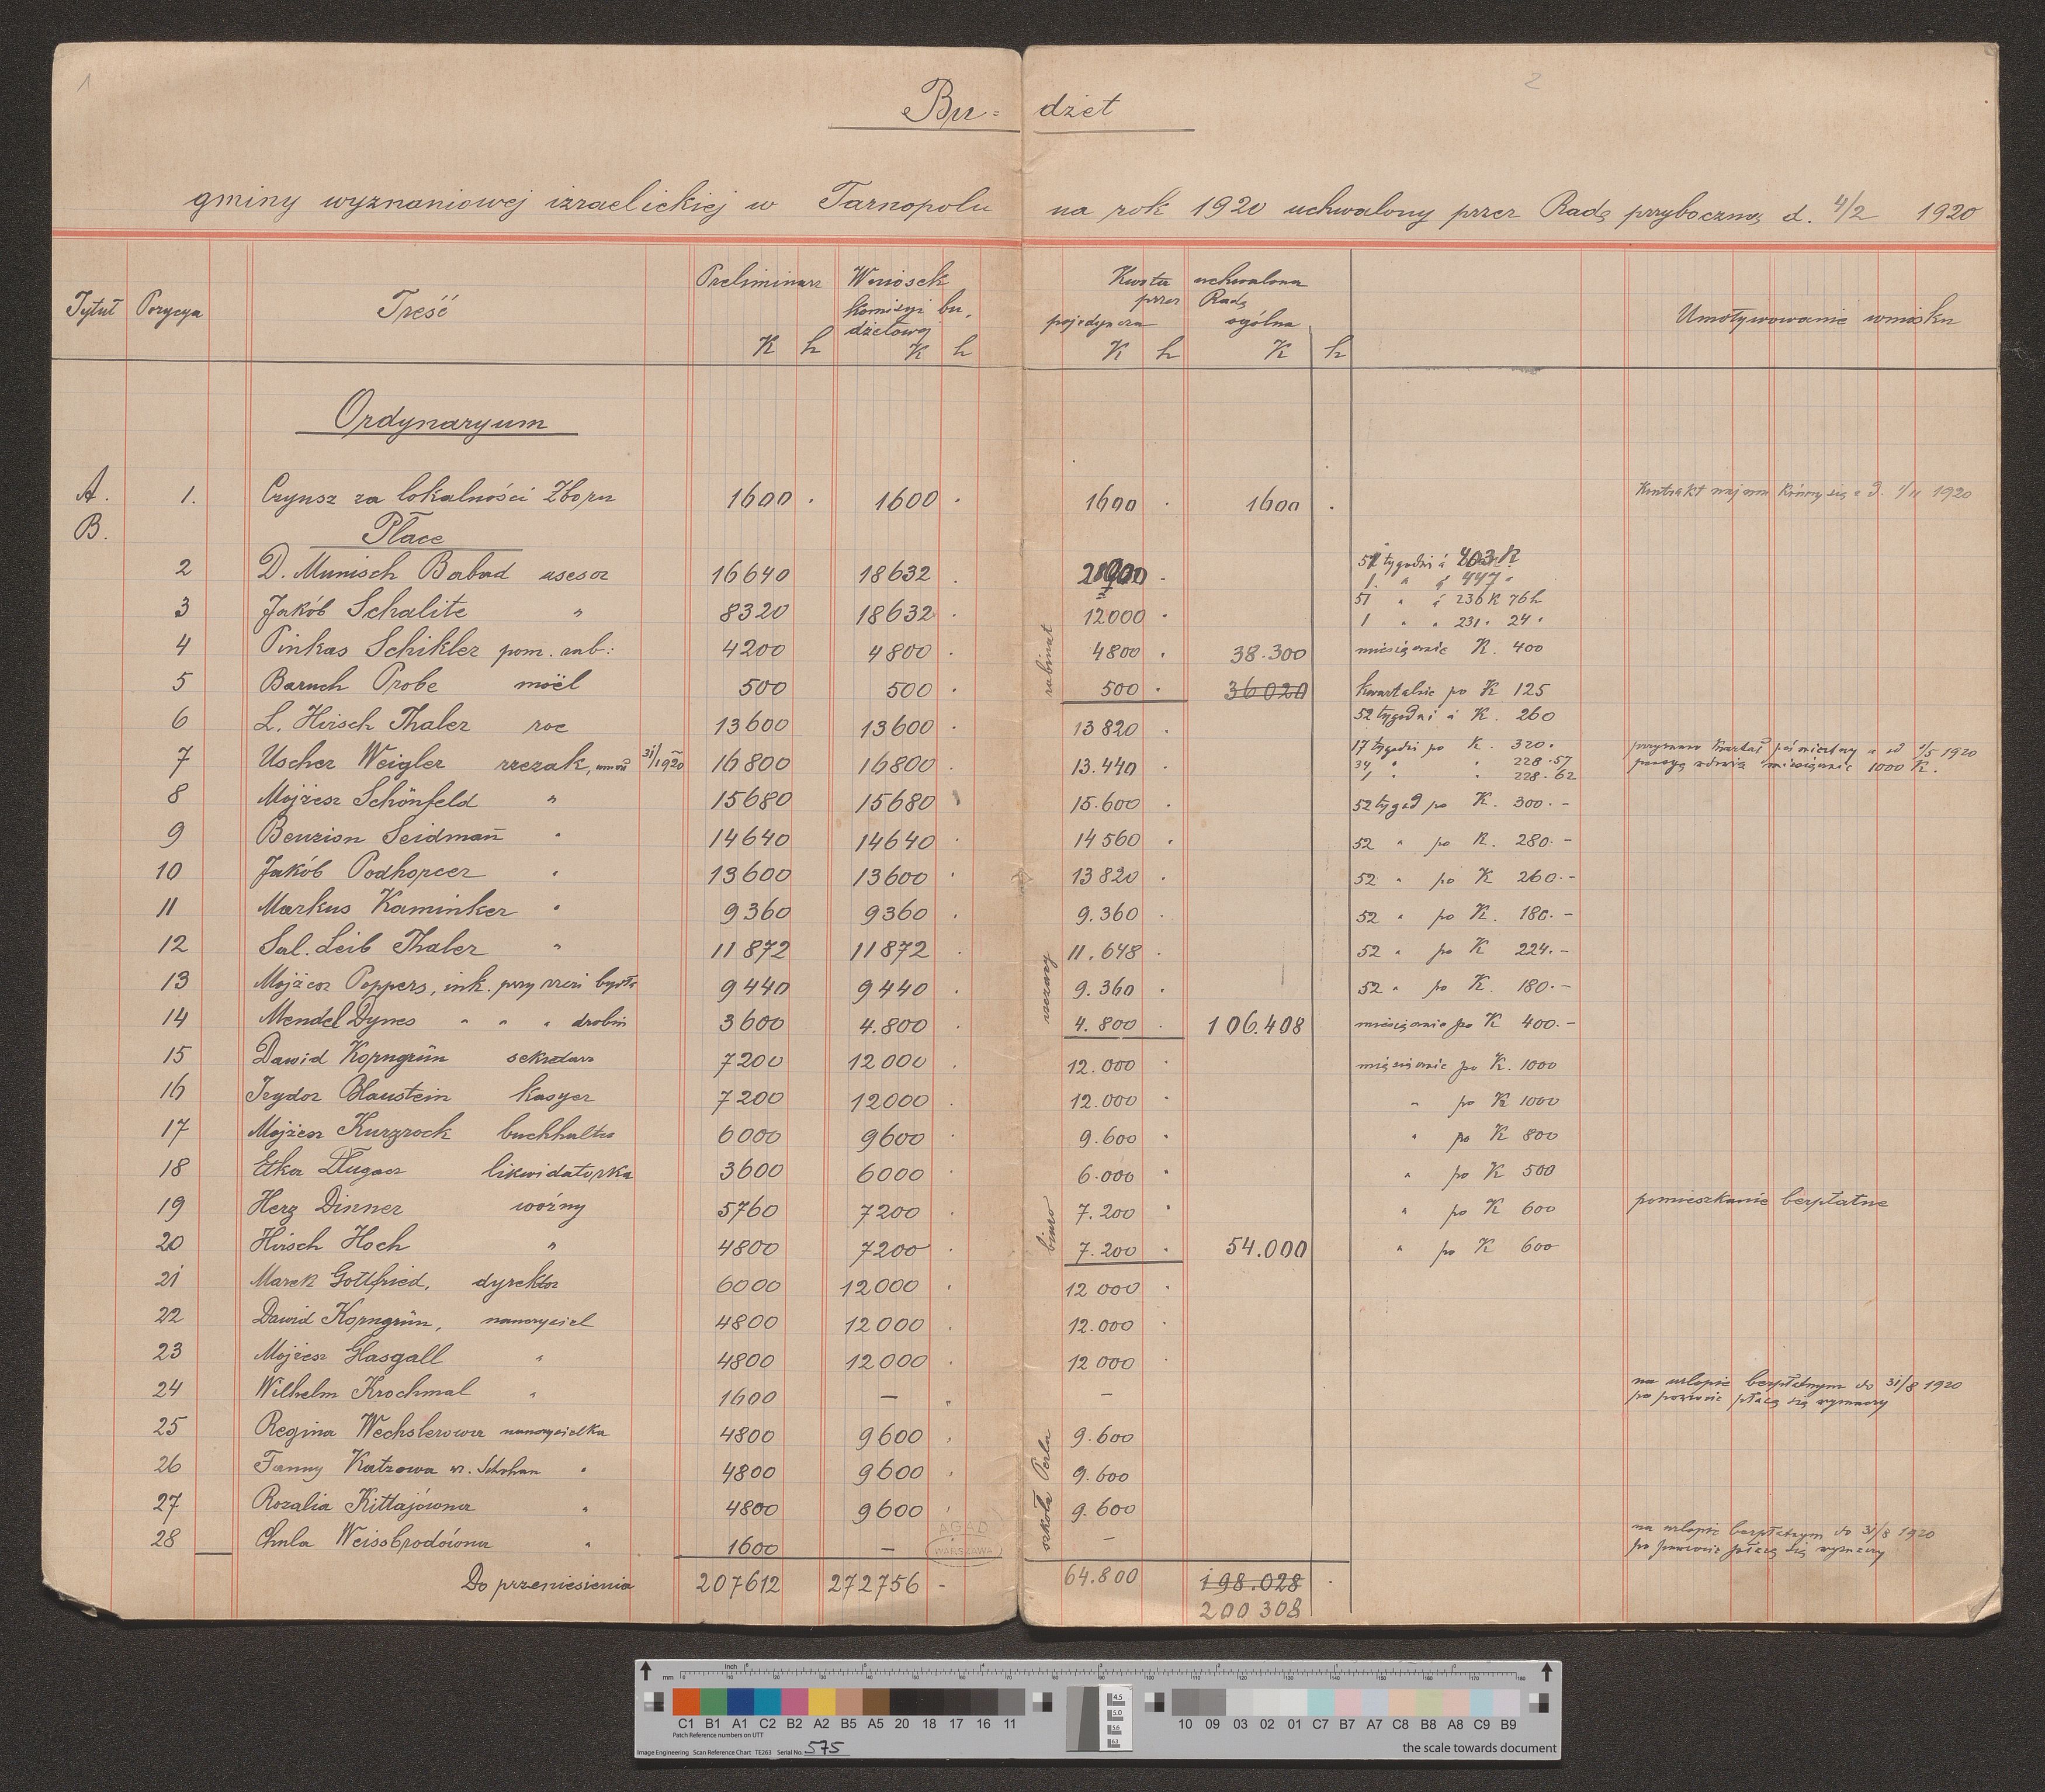 1
2
Bu=dżet
gminy wyznaniowej izraelickiej w Tarnopolu na rok 1920 uchwalony przez Radę przyboczną d. 4/2 1920
Tytuł Pozycya Treść Preliminarz K h Wniosek komisyi budżetowej K h Kwota uchwalona przez Radę pojedyncza K h ogólna K h Umotywowanie wniosku
Ordynaryum
A. 1. Czynsz za lokalności Zboru 1600 . 1600 . 1600 . 1600 . Kontrakt najmu kończy się z d. 1/11 1920
B. Płace
2 D. Munisch Babad asesor 16640 18632 . 51 tygodni á 403 K
1 " á 447 "
3 Jakób Schalite " 8320 18632 . 12000 . 51 " á 236 K 76 h
1 " " 231 " 24 "
4 Pinkas Schikler pom. rab: 4200 4800 . 4800 . 38.300 miesięcznie K. 400
5 Baruch Probe moël 500 500 . 500 . 36020 kwartalnie po K 125
rabinat
6 L. Hirsch Thaler rze 13600 13600 . 13820 . 52 tygodni á K. 260
7 Uscher Weigler rzezak, 31/1 1920 16800 16800 . 13.440 . 17 tygodni po K. 320.
34 " " 228.57
1 " " 228.62
od 1/5 1920
miesięcznie 1000 K.
8 Mojżesz Schönfeld " 15680 15680 15.600 . 52 tygod po K. 300.-
9 Benzion Seidmañ " 14640 14640 . 14560 . 52 " po K. 280.-
10 Jakób Podhorcer " 13600 13600 . 13820 . 52 " po K 260.-
11 Markus Kaminker " 9360 9360 . 9.360 . 52 " po K. 180.-
12 Sal. Leib Thaler " 11872 11872 . 11.648 . 52 " po K 224.-
13 Mojżesz Poppers, ink. przy rzezi bydła 9440 9440 . 9.360 . 52 " po K. 180.-
14 Mendel Dynes " " " drobiu 3600 4.800 . 4.800 . 106.408 miesięcznie po K 400.-
15 Dawid Korngrün sekretarz 7200 12000 . 12.000 . miesięcznie po K. 1000
16 Izydor Blaustein kasyer 7200 12000 . 12.000 . " po K 1000
17 Mojżesz Kurzrock buchhalter 6000 9600 . 9.600 . " po K 800
18 Etka Długacz likwidatorka 3600 6000 . 6.000 . " po K 500
19 Herz Dinner woźny 5760 7200 . 7.200 . " po K 600 pomieszkanie bezpłatne
20 Hirsch Hoch " 4800 7200 . 7.200 . 54.000 " po K 600
biuro
21 Marek Gottfried, dyrektor 6000 12000 . 12 000 .
22 Dawid Korngrün, nauczyciel 4800 12000 . 12.000 .
23 Mojżesz Glasgall " 4800 12000 . 12 000 .
24 Wilhelm Krochmal " 1600 — — na urlopie bezpłatnym do 31/8 1920
po powrocie płacę się wymierzy
25 Regina Wechslerowa nauczycielka 4800 9600 . 9.600
26 Fanny Katzowa " 4800 9600 . 9.600
27 Rozalia Kittajówna " 4800 9600 . 9.600
28 Chula Weissbrodówna " 1600 — — na urlopie bezpłatnym do 31/8 1920
po powrocie płacę się wymierzy
szkoła Perla
Do przeniesienia 207612 272756 - 64.800 198.028 .
200 308
AGAD
WARSZAWA
mm Inch
C1 B1 A1 C2 B2 A2 B5 A5 20 18 17 16 11 10 09 03 02 01 C7 B7 A7 C8 B8 A8 C9 B9
Patch Reference numbers on UTT
Image Engineering Scan Reference Chart TE263 Serial No. 575
the scale towards document